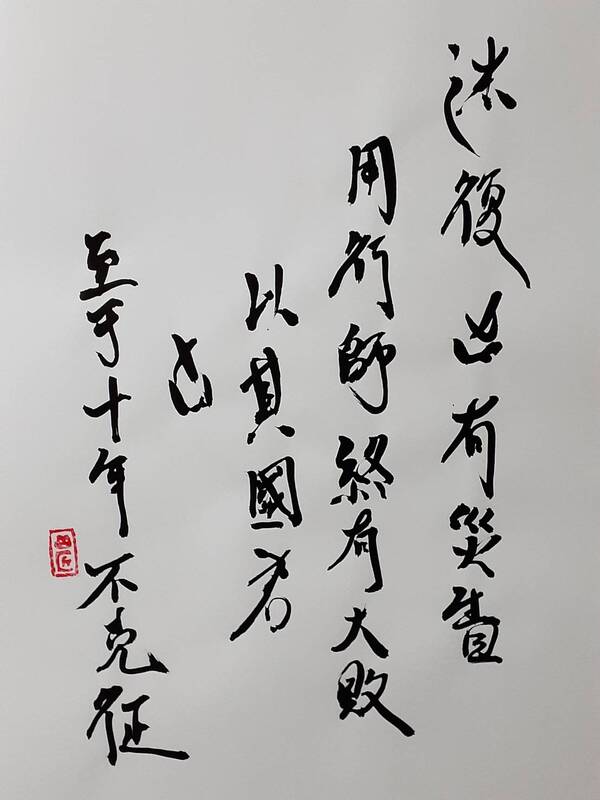 迷復凶有災眚
用行師終有大敗
以其國君
凶
至于十年不克征